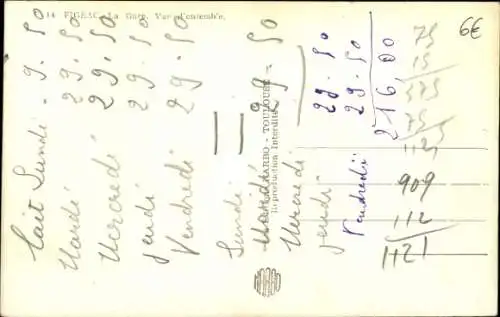 14 FIGEAC. La Gare. Vue d'ensemble.
6€
Lait Lundi . 9.50
Mardi 29.50
Mercredi 29.50
Jeudi 29.50
Vendredi 29.50
Lundi =
Mardi 29.50
Mercredi
Jeudi 29.50
Vendredi 29.50
216,00
LABO - TOULOUSE
Reproduction Interdite
909
112
1121